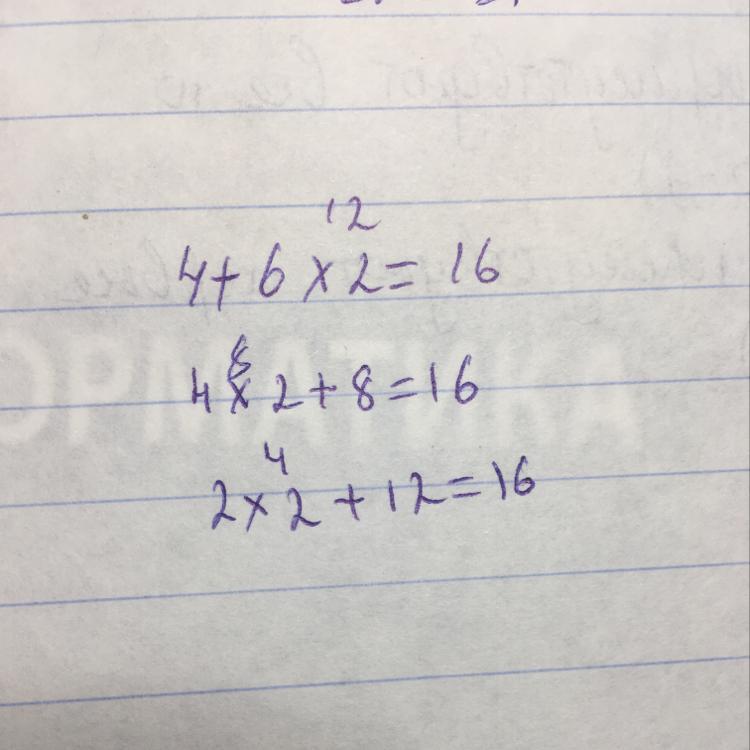 12
4 + 6 × 2 = 16
8
4 × 2 + 8 = 16
4
2 × 2 + 12 = 16